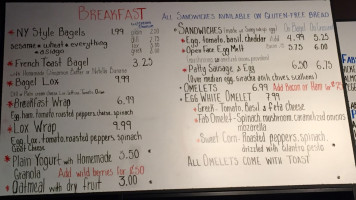 BREAKFAST
ALL SANDWICHES AVAILABLE ON GLUTEN-FREE BREAD
NY Style Bagels 1.99
sesame wheat everything
French Toast Bagel 3.25
with Homemade Cinnamon Butter or Nutella Banana
Bagel Lox 9.99
Breakfast Wrap 6.99
Egg, ham, tomato, roasted peppers, cheese, spinach
Lox Wrap 9.99
Egg, Lox, Tomato, roasted peppers, spinach
Plain Yogurt with Homemade 5.50
Granola Add wild berries for
Oatmeal with dry fruit 3.00
SANDWICHES
Egg, tomato, basil, cheddar 4.99 5.25
Open Face Egg Melt 5.75 6.00
Patty Sausage & Egg 6.50 6.75
OMELETS 6.99 Add bacon or Ham
EGG WHITE OMELET 7.99
Greek: Tomato, Basil & feta cheese
Fab Omelet - Spinach, mushroom, caramelized onions
mozzarella
Sweet Corn - Roasted peppers, spinach,
drizzled with cilantro pesto
ALL OMELETS COME WITH TOAST